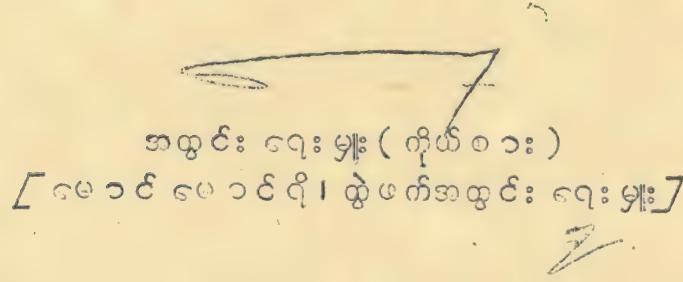 အတွင်းရေးမှူး(ကိုယ်စား)
[မောင်မောင်ရီ၊ တွဲဖက်အတွင်းရေးမှူး]